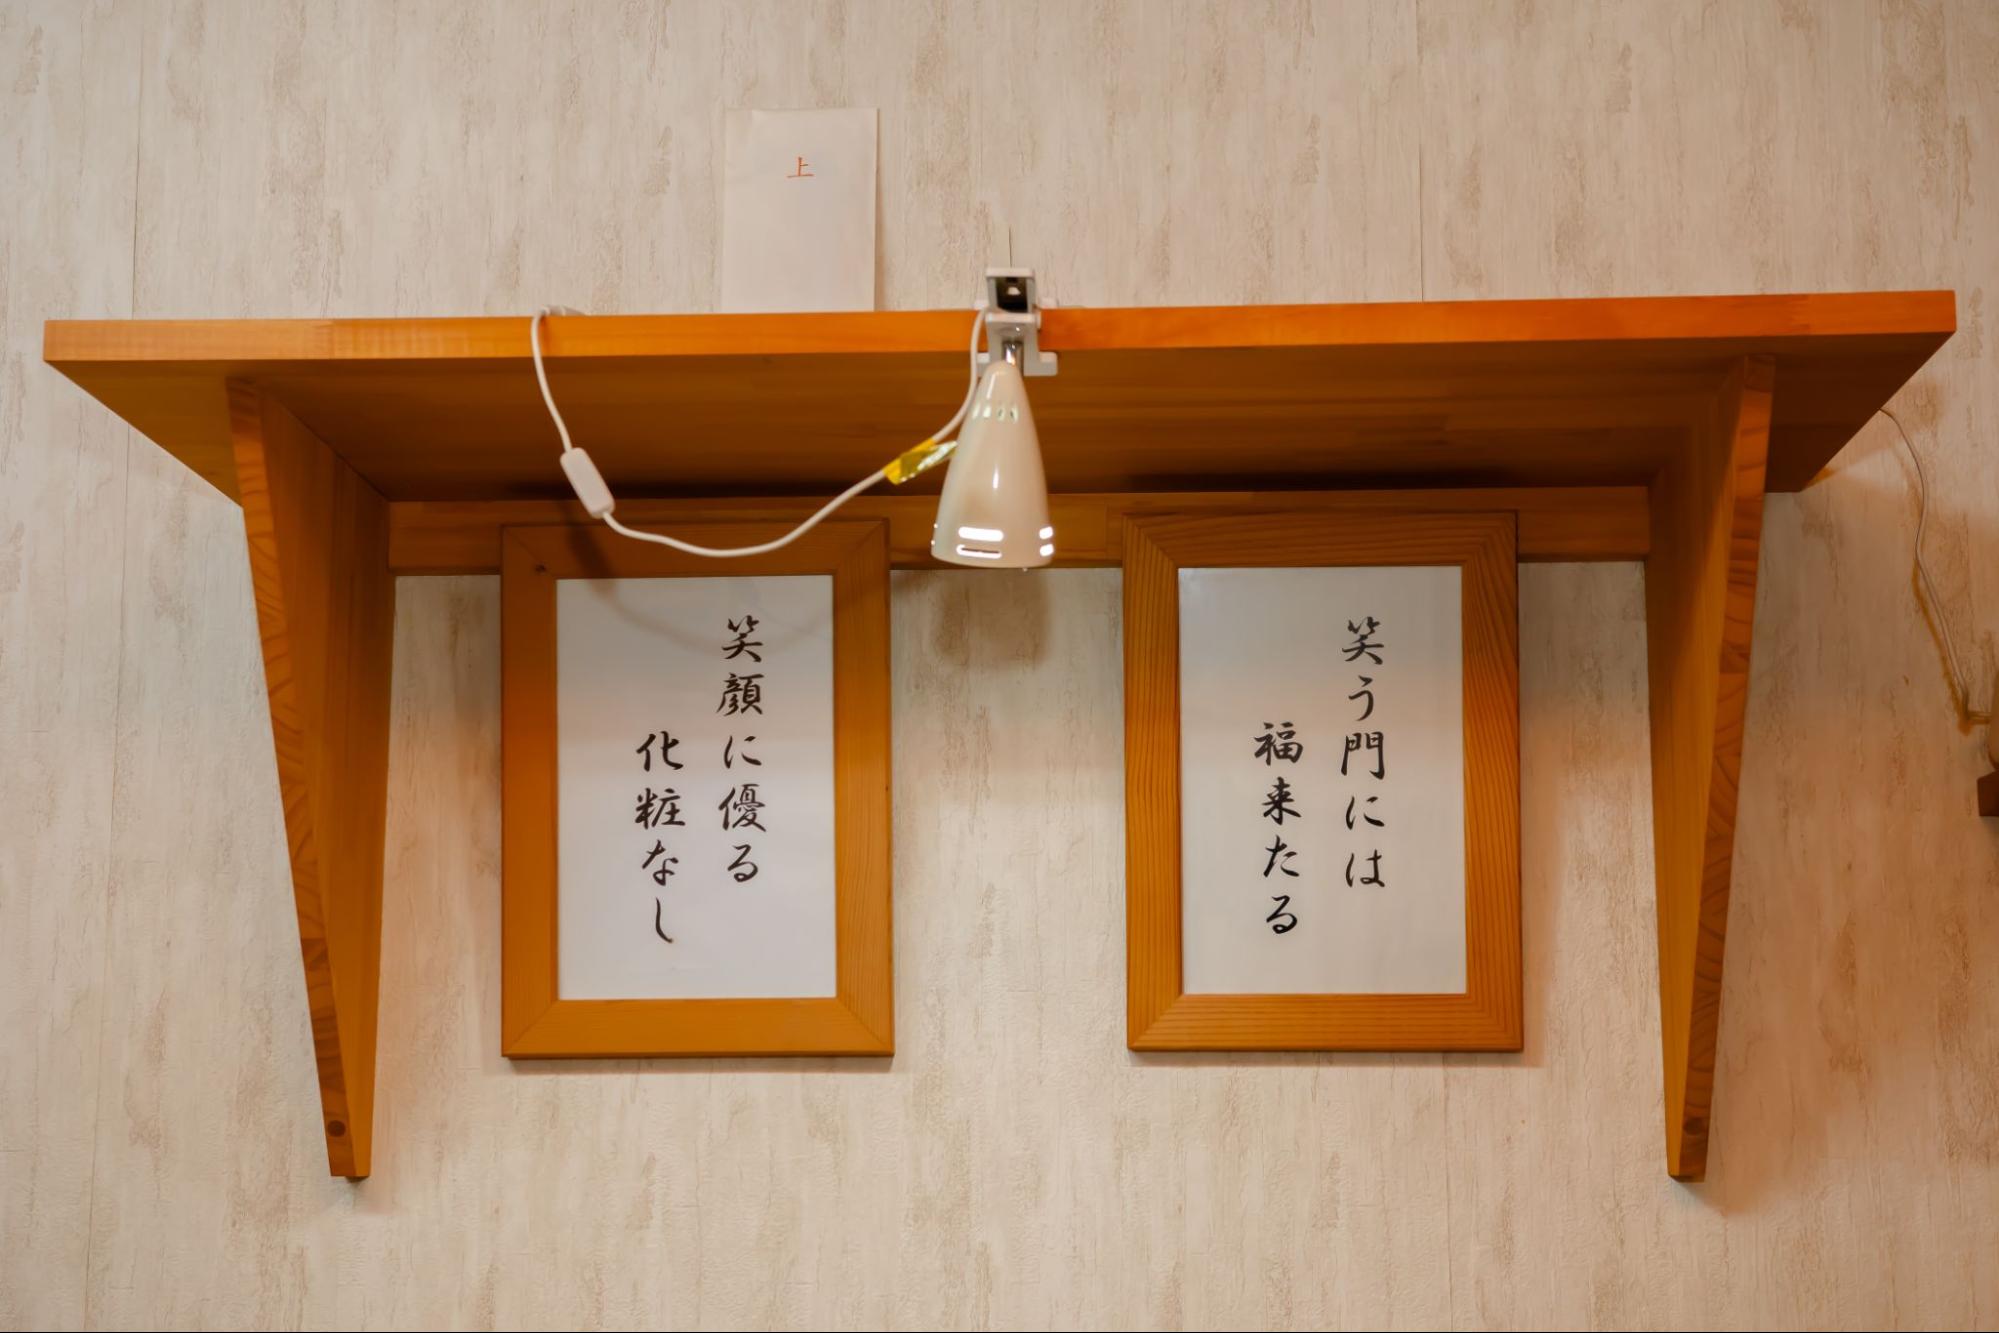 上
笑う門には
福来たる
笑顔に優る
化粧なし